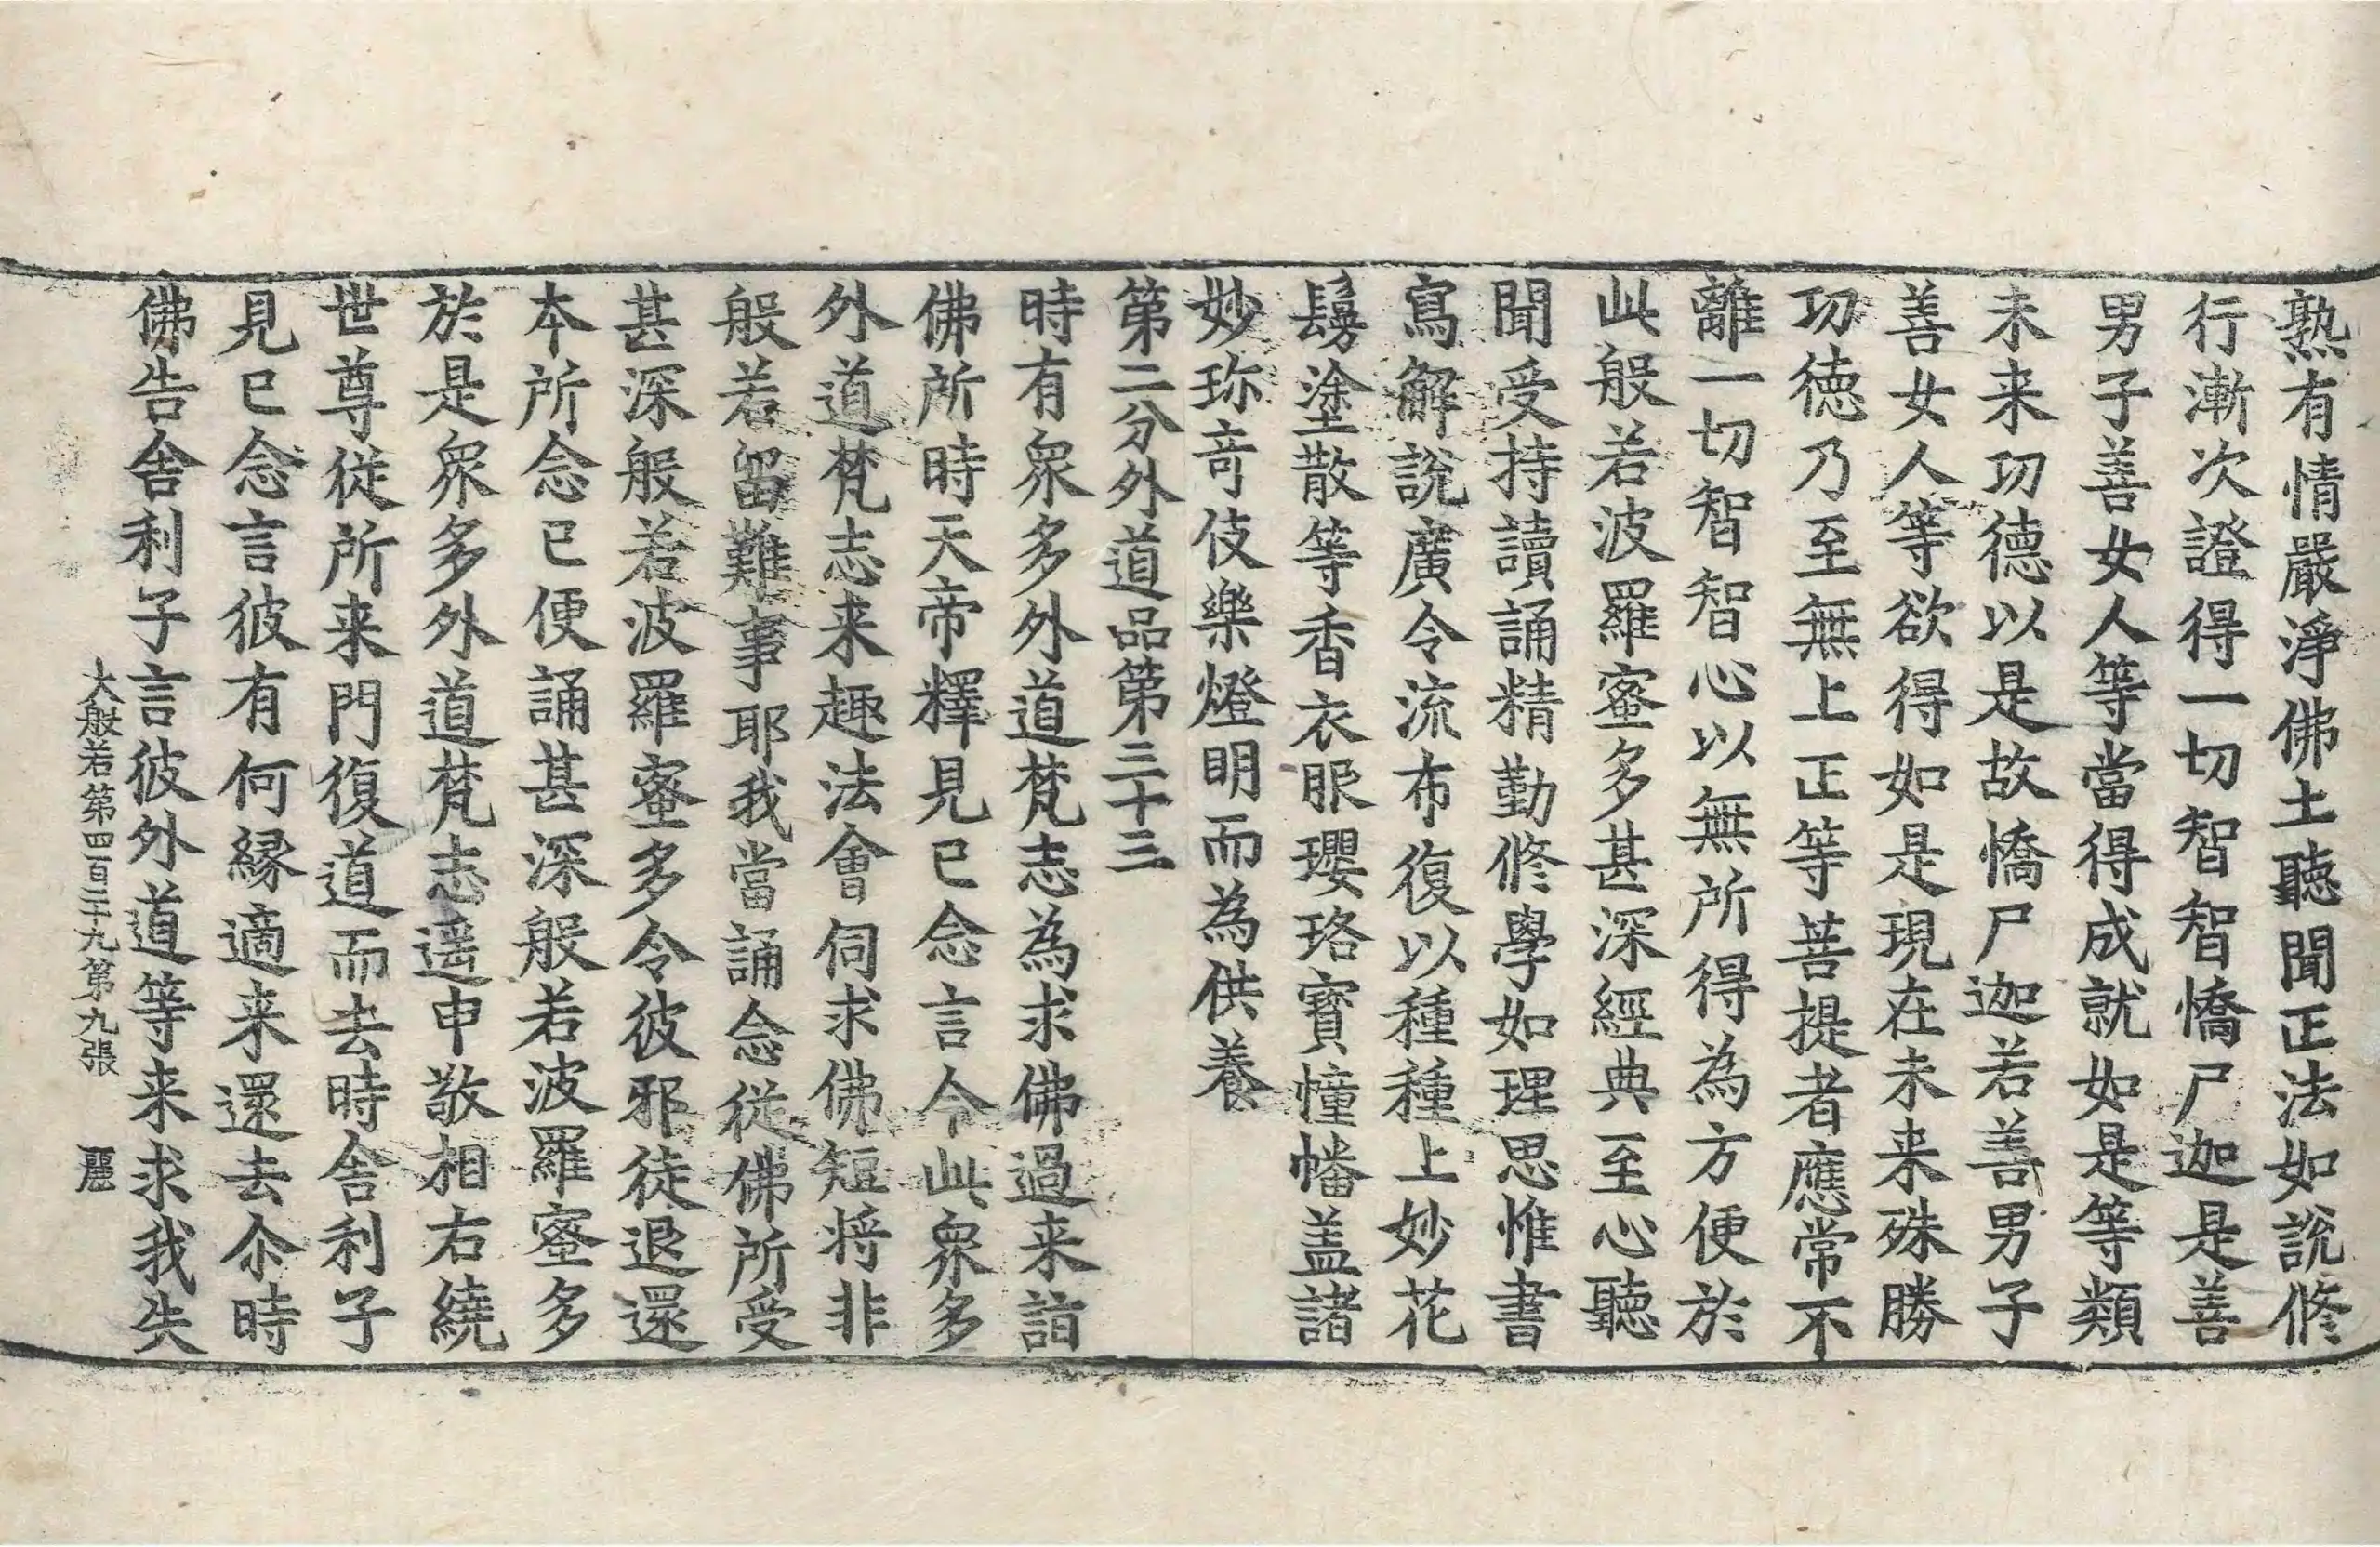 熟有情嚴淨佛土聽聞正法如說修
行漸次證得一切智智憍尸迦是善
男子善女人等當得成就如是等類
未来功德以是故憍尸迦若善男子
善女人等欲得如是現在未来殊勝
功徳乃至無上正等菩提者應常不
離一切智智心以無所得為方便於
此般若波羅蜜多甚深經典至心聽
聞受持讀誦精勤修學如理思惟書
寫解說廣令流布復以種種上妙花
鬘塗散等香衣服瓔珞寶幢幡盖諸
妙珎竒伎樂燈明而為供養
第二分外道品第三十三
時有衆多外道梵志為求佛過来詣
佛所時天帝釋見已念言今此衆多
外道梵志来趣法會伺求佛短将非
般若留難事耶我當誦念從佛所受
甚深般若波羅蜜多令彼邪徒退還
本所念已便誦甚深般若波羅蜜多
於是衆多外道梵志遥申敬相右繞
世尊從所来門復道而去時舍利子
見已念言彼有何緣適来還去尒時
佛告舍利子言彼外道等来求我失
大般若第四百二十九第九張 麗